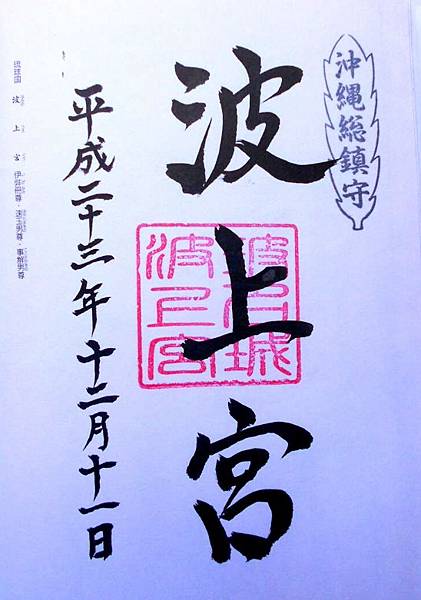 沖縄総鎮守
波上宮
平成二十三年十二月十一日
琉球国 波上宮 伊弉冊尊・速玉男尊・事解男尊